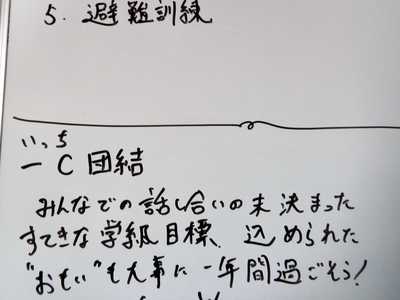 5. 避難訓練
いっち
一 C 団結
みんなでの話し合いの末決まった
すてきな学級目標、込められた
"おもい"も大事に一年間過ごそう!